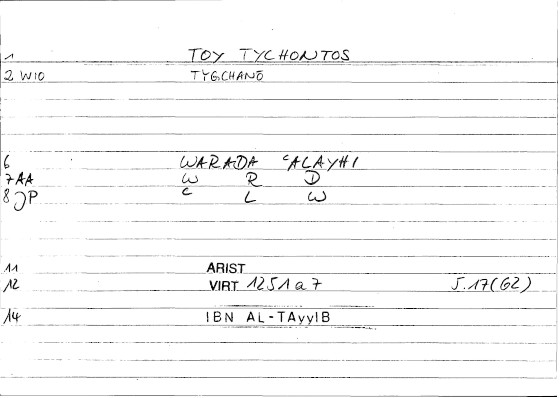 1 TOY TYCHONTOS
2 W10 TYGCHANŌ
6 WARADA ʿALAYHI
7 AA W R D
8 JP ʿ L W
11 ARIST
12 VIRT 1251a7 5.17(G2)
14 IBN AL-TAyyIB